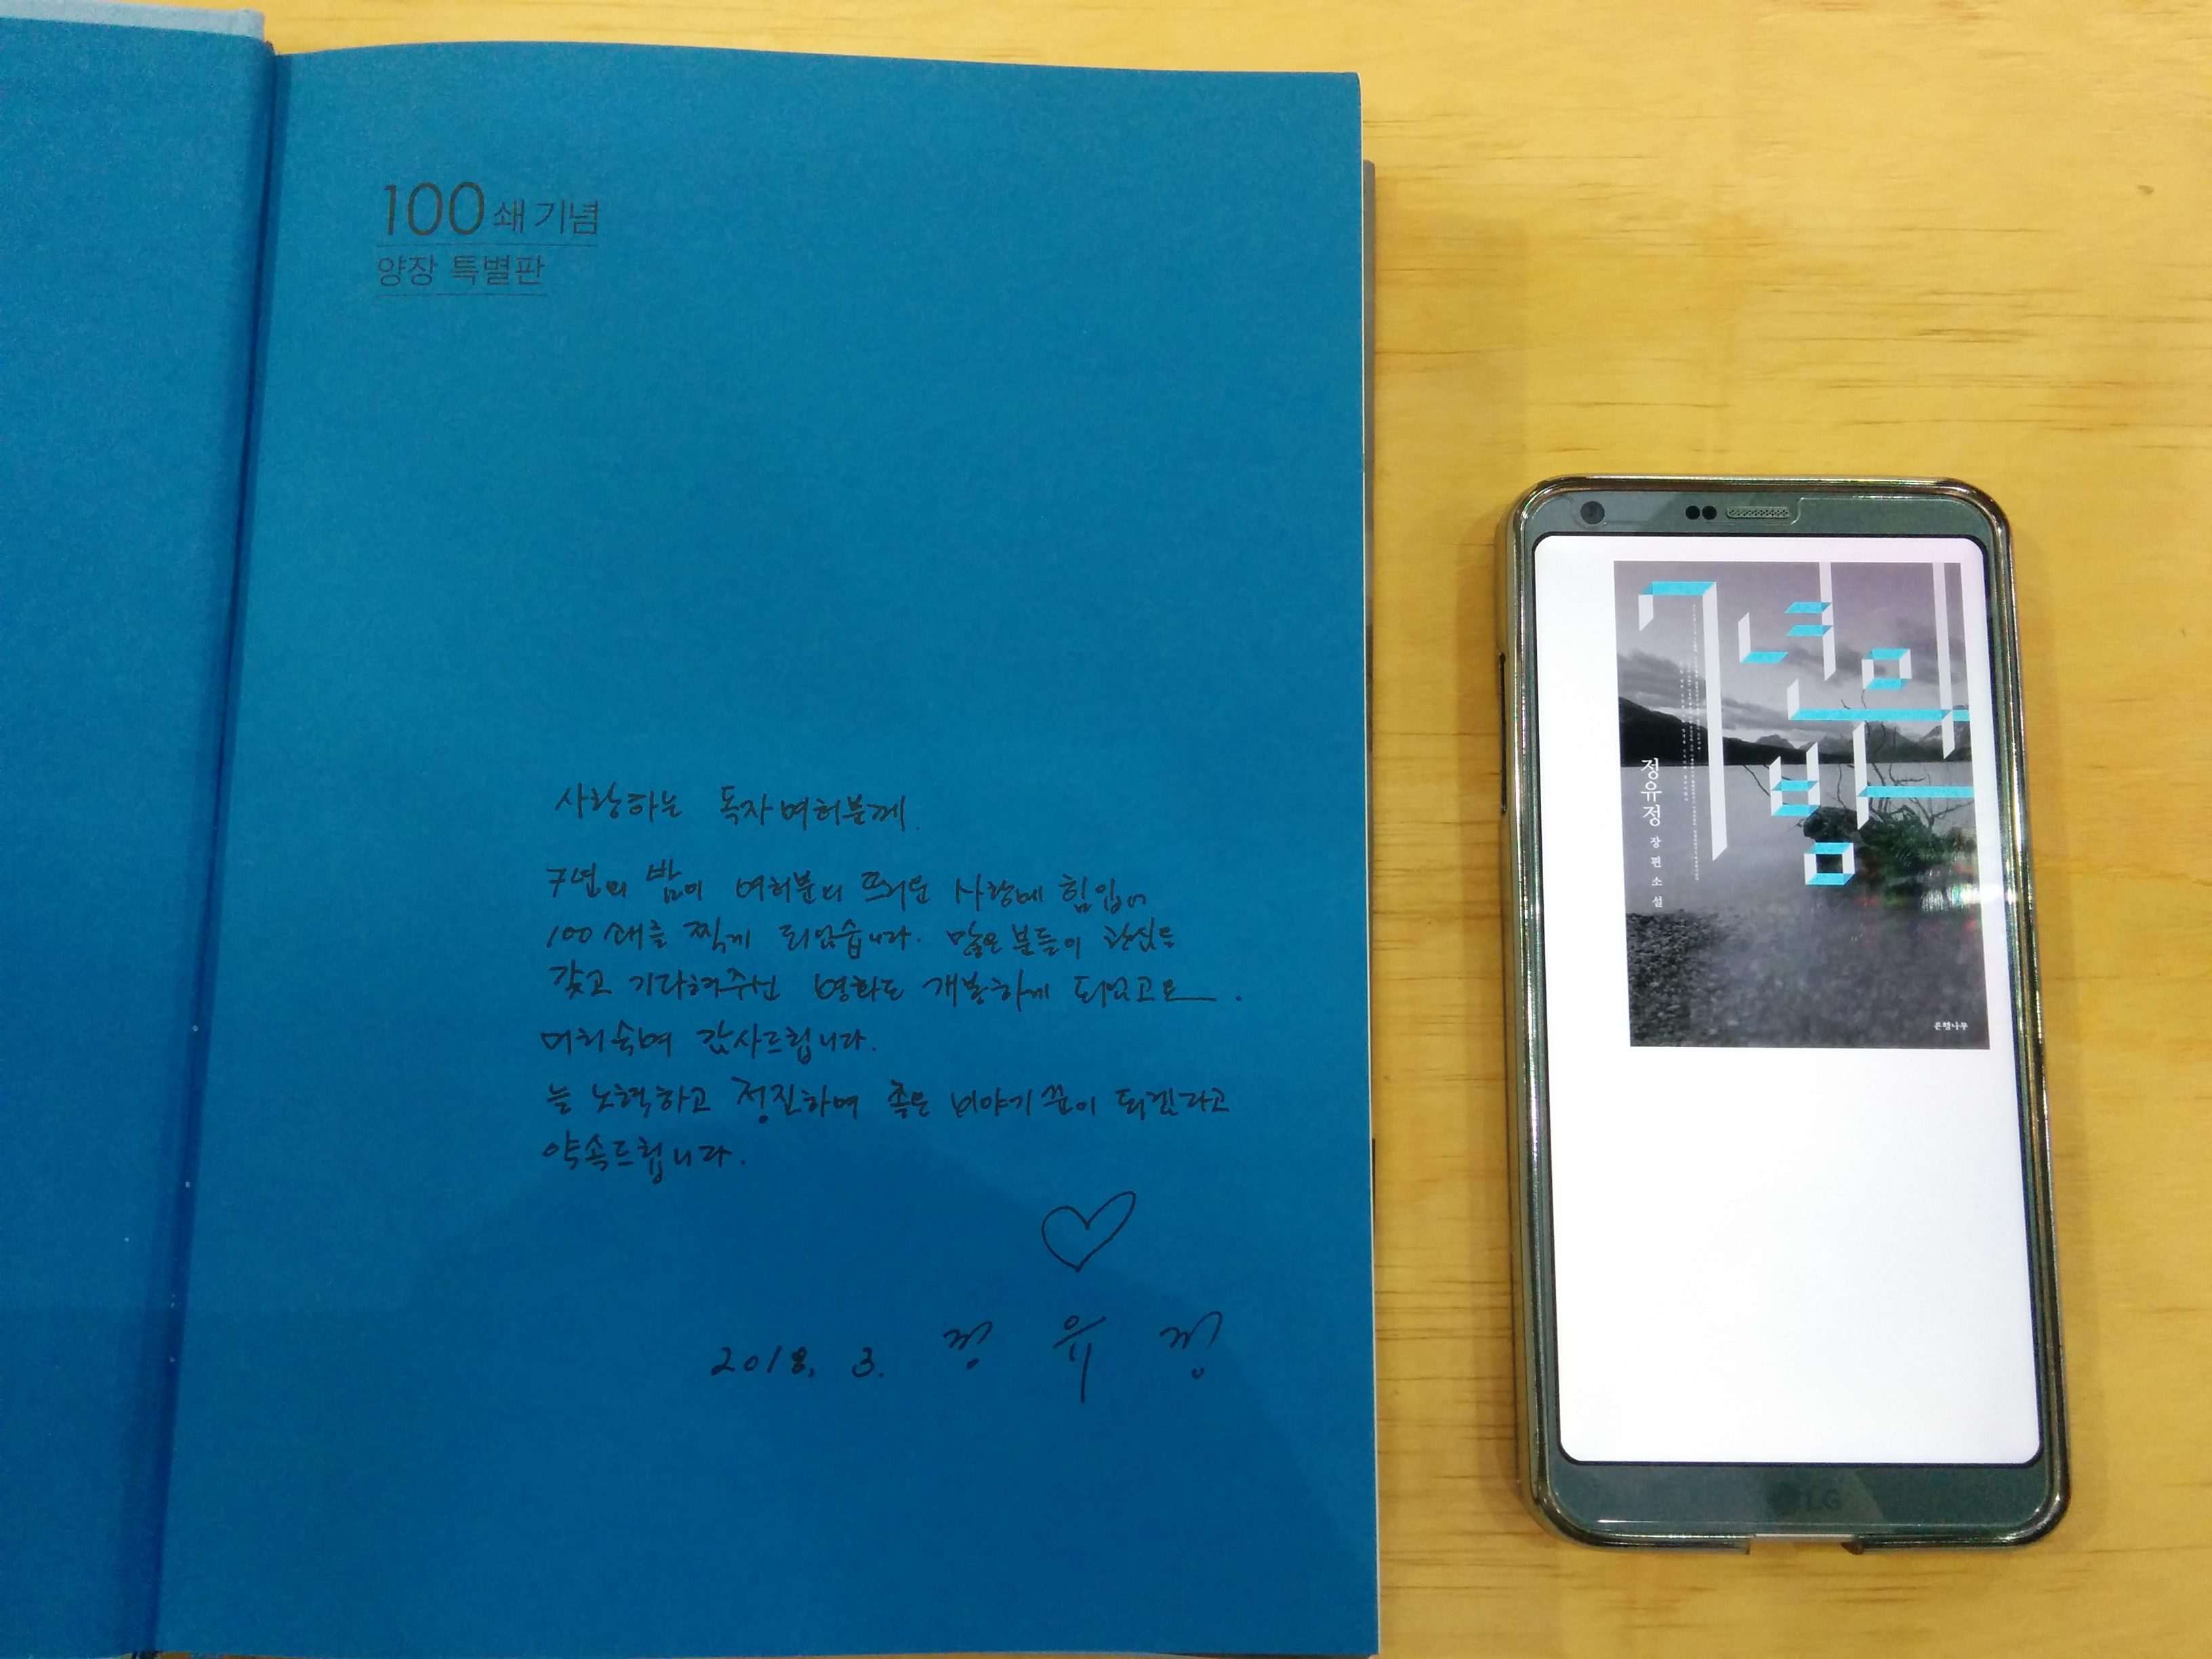 100쇄 기념
양장 특별판
사랑하는 독자 여러분께.
7년의 밤이 여러분의 뜨거운 사랑에 힘입어
100쇄를 찍게 되었습니다. 많은 분들이 관심을
갖고 기다려주신 영화도 개봉하게 되었고요.
머리숙여 감사드립니다.
늘 노력하고 정진하여 좋은 이야기꾼이 되겠다고
약속드립니다.
2018. 3. 정유정
7년의
밤
정유정
장편소설
은행나무
LG